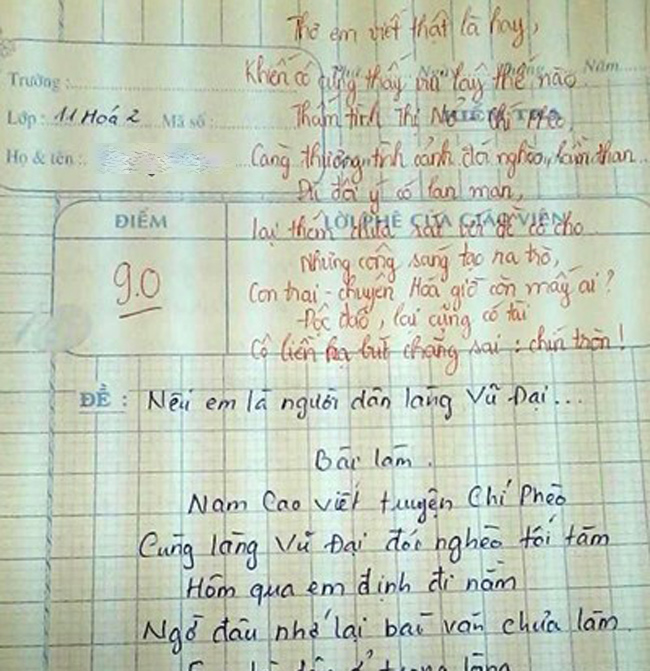 Thơ em viết thật là hay,
Khiến cô cũng thấy mê say thế nào
Năm
Trường :
Thấm tình Thị Nở Chí Phèo,
Lớp : 11 Hoá 2 Mã số :
Họ & tên :
Càng thương tình cảnh đói nghèo, lầm than...
Dù đôi ý có lan man,
ĐIỂM
LỜI PHÊ CỦA GIÁO VIÊN
Lại thêm chưa sát với đề cô cho
Nhưng công sáng tạo ra trò,
9.0
Con trai - chuyên Hóa giờ còn mấy ai?
Độc đáo, lại cũng có tài
Cô liền hạ bút chẳng sai : chín tròn!
ĐỀ : Nếu em là người dân làng Vũ Đại...
Bài làm.
Nam Cao viết truyện Chí Phèo
Cùng làng Vũ Đại đói nghèo tối tăm
Hôm qua em định đi nằm
Ngờ đâu nhớ lại bài văn chưa làm.